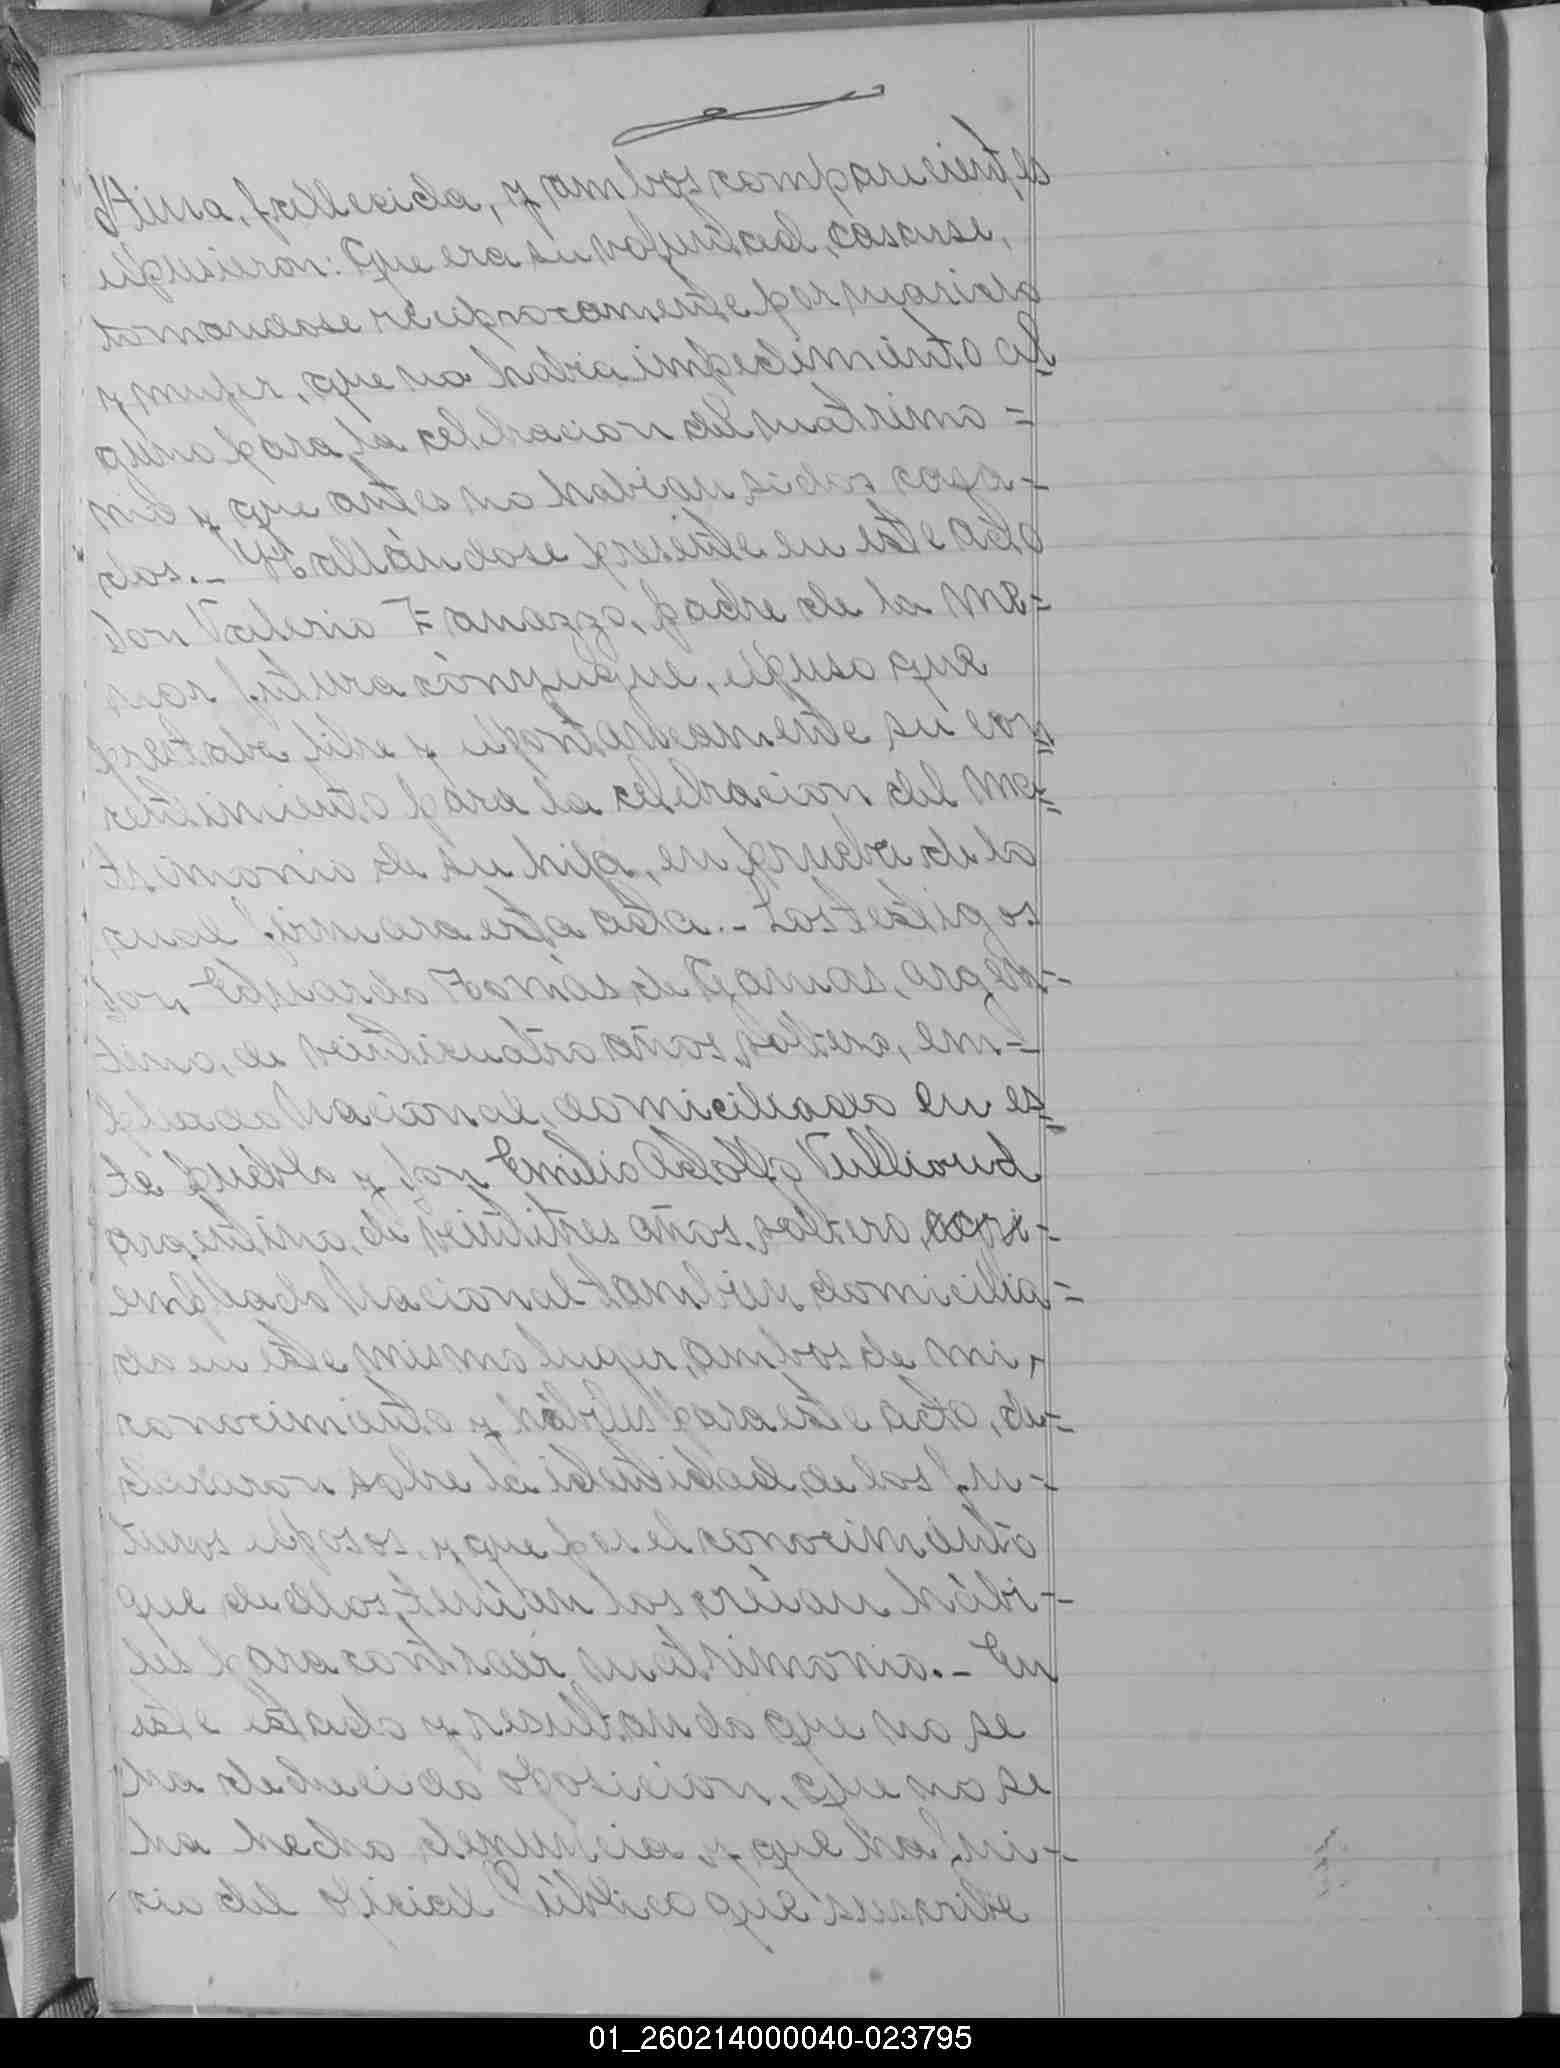 tina, fallecida, y ambos comparecientes
expusieron: Que era su voluntad, casarse,
tomandose reciprocamente por marido
y mujer, que no habia impedimento al
guno para la celebracion del matrimo =
nio y que antes no habian sido casa-
dos.- Hallándose presente en este acto
don Valerio Fanazzo, padre de la me=
nor futura cónyugue, expuso que
prestaba libre y espontaneamente su con
sentimiento para la celebracion del ma
trimonio de su hija, en prueba de lo
cual firmara esta acta.- Los testigos
don Eduardo Tomás de, argen-
tino, de veinticuatro años, soltero, em-
pleado Nacional, domiciliado en es
te pueblo y don Emilio Adolfo Vullioud
argentino, de veintitres años, soltero,
empleado Nacional tambien domicilia=
do en este mismo lugar, ambos de mi
conocimiento y hábiles para este acto, de=
clararon sobre la identidad de los fu-
turos esposos, y que por el conocimiento
que de ellos tenian los creian hábi-
les para contraer matrimonio.- En
este estado y resultando que no se
ha deducido oposicion, que no se
ha hecho denuncia, y que han ni-
cio del Oficial Público que suscribe
01_260214000040-023795